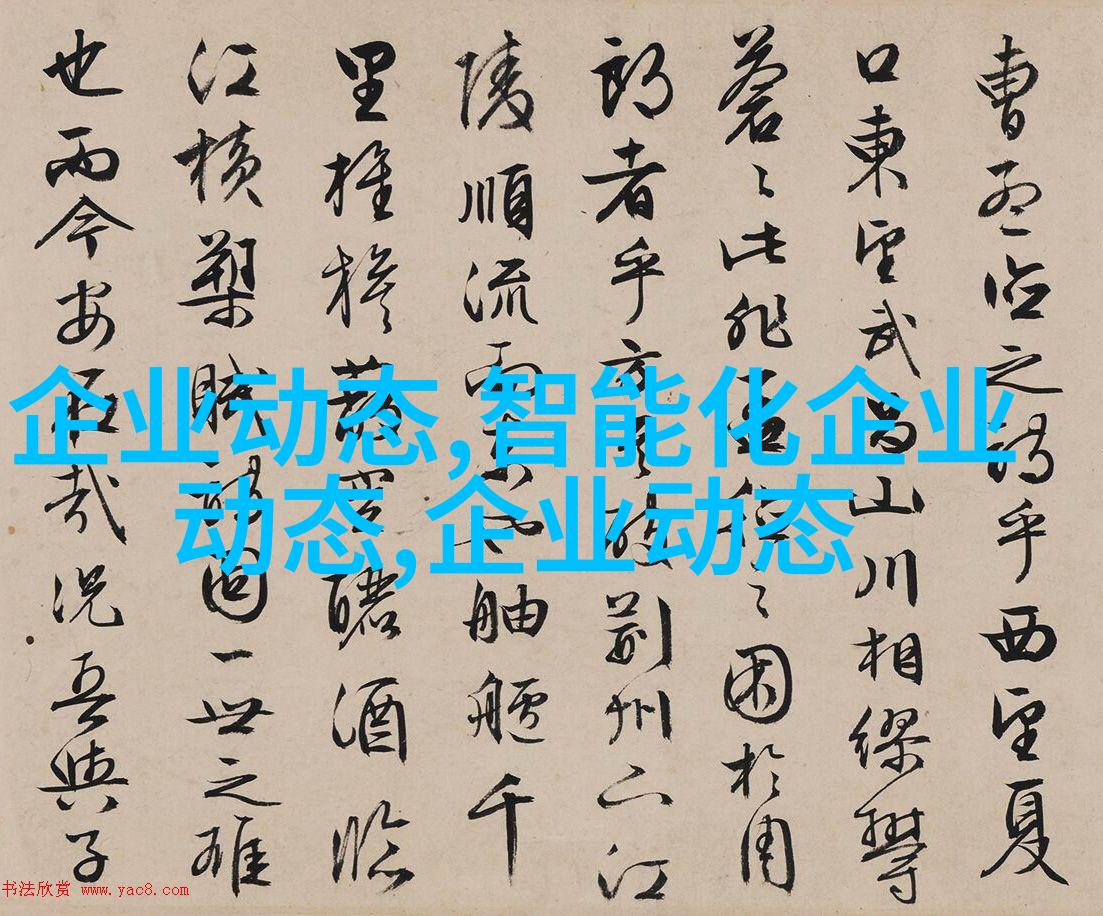 曹孟德之詩乎西望夏
口東望武昌山川相繆鬱
蒼〻此非孟德之困於周
郎者乎方其破荊州下江
陵順流而東也舳艫千
里旌旗蔽空釃酒臨
江橫槊賦詩固一世之雄
也而今安在哉況吾與子
企业动态,智能化企业
动态,企业动态
书法欣赏 www.yac8.com